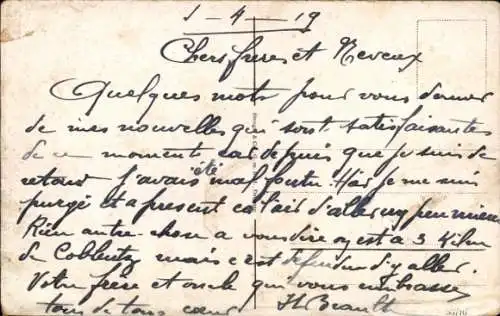 1 - 4 - 19
Chers frères et Neveux
Quelques mots pour vous donner
de mes nouvelles qui sont satisfaisantes
de ce moment car depuis que je suis de
retour j'avais été mal foutu. Hier je me suis
purgé et a present ca l'air d'aller un peu mieux
Rien autre chose a vous dire on est a 3 Kilm
de Coblentz mais c'est defendu d'y aller.
Votre frère et oncle qui vous embrasse
tous de tout cœur H Brault